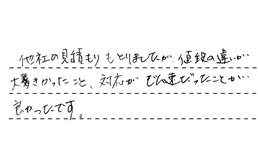 他社の見積もりもとりましたが、値段の違いが
大きかったこと、対応が迅速だったことが
良かったです。